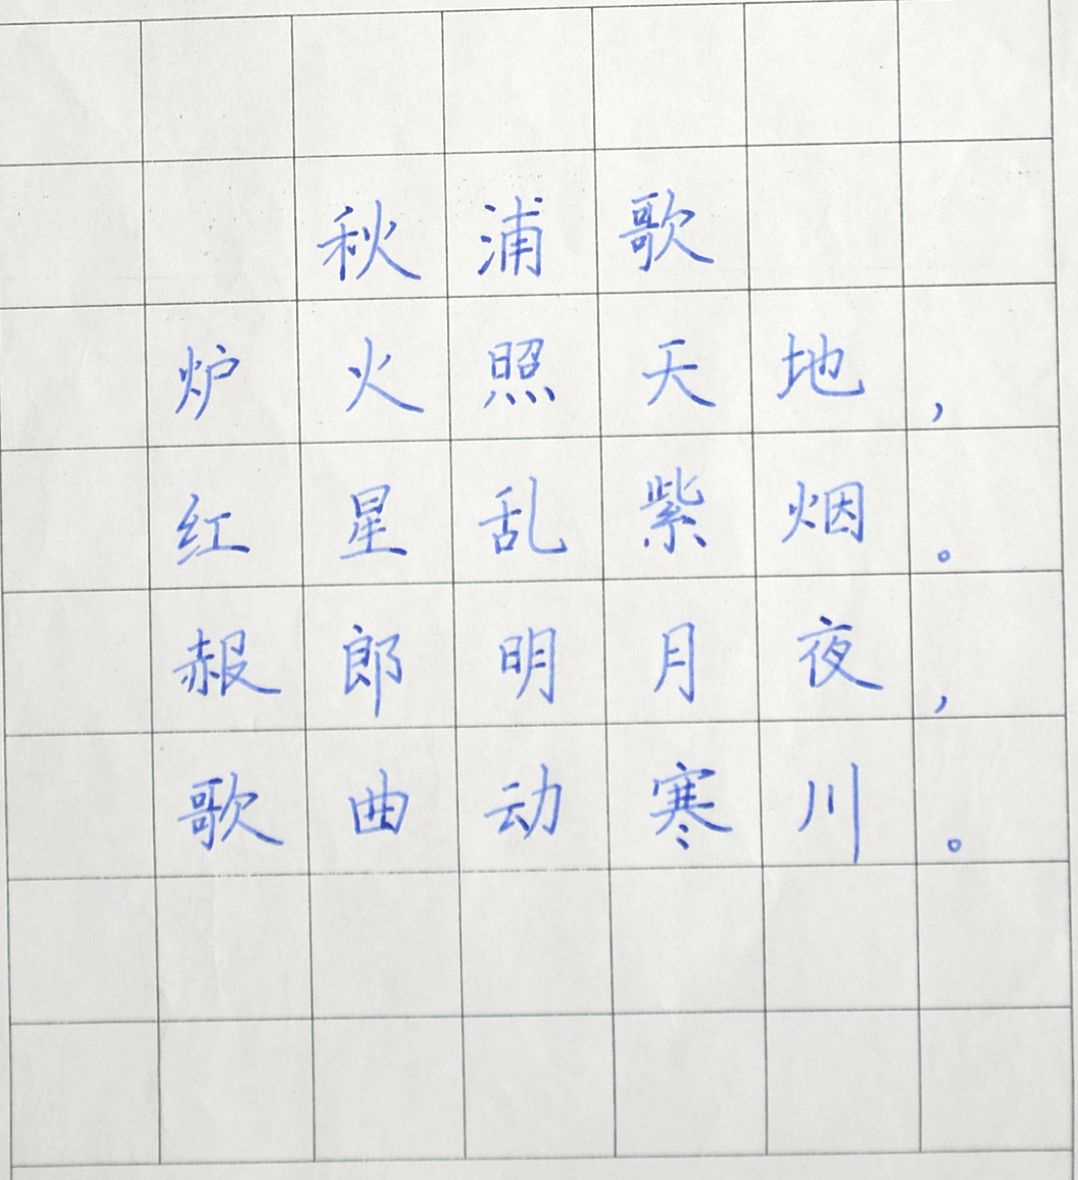 秋浦歌
炉火照天地，
红星乱紫烟。
赧郎明月夜，
歌曲动寒川。